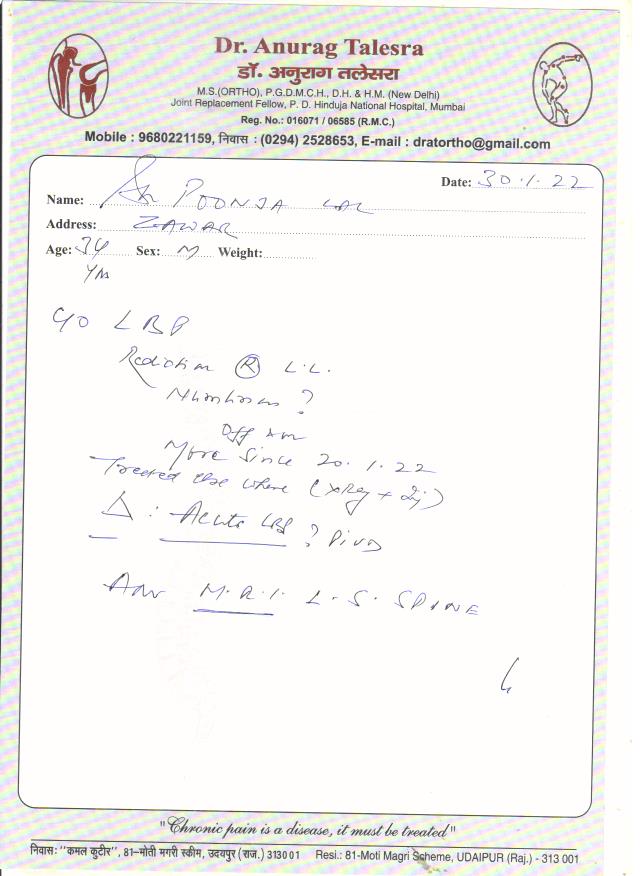 Dr. Anurag Talesra
डॉ. अनुराग तलेसरा
M.S.(ORTHO), P.G.D.M.C.H., D.H. & H.M. (New Delhi)
Joint Replacement Fellow, P. D. Hinduja National Hospital, Mumbai
Reg. No.: 016071 / 06585 (R.M.C.)
Mobile : 9680221159, निवास : (0294) 2528653, E-mail : dratortho@gmail.com
Date: 30.1.22
Name: POONJA LAL
Address: ZAWAR
Age: 34 Sex: M Weight:
C/O LBP
Radiation R L.L.
Numbness ?
Off
More since 20.1.22
Treated else where (XRay + Inj)
Δ : Acute LBP ? PIVD
Adv M.R.I. L.S. SPINE
"Chronic pain is a disease, it must be treated"
निवास: "कमल कुटीर", 81-मोती मगरी स्कीम, उदयपुर (राज.) 313001 Resi.: 81-Moti Magri Scheme, UDAIPUR (Raj.) - 313 001